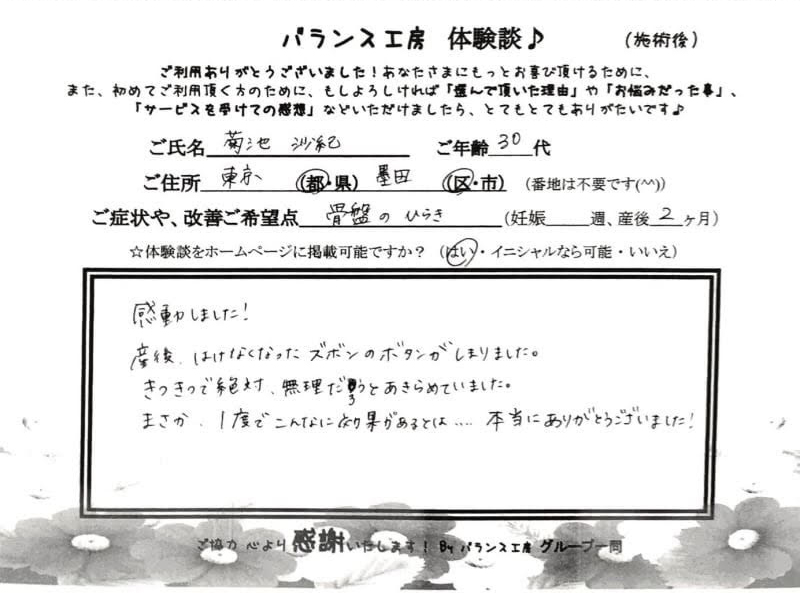 バランス工房 体験談♪ (施術後)
ご利用ありがとうございました！あなたさまにもっとお喜び頂けるために、
また、初めてご利用頂く方のために、もしよろしければ「選んで頂いた理由」や「お悩みだった事」、
「サービスを受けての感想」などいただけましたら、とてもとてもありがたいです♪
ご氏名 菊池 沙紀 ご年齢 30 代
ご住所 東京 (都・県) 墨田 (区・市) (番地は不要です(^^))
ご症状や、改善ご希望点 骨盤のひらき (妊娠 週、産後 2 ヶ月)
☆体験談をホームページに掲載可能ですか？ (はい・イニシャルなら可能・いいえ)
感動しました！
産後、はけなくなったズボンのボタンがしまりました。
きつきつで絶対、無理だろうとあきらめていました。
まさか、1度でこんなに効果があるとは…. 本当にありがとうございました！
ご協力 心より 感謝いたします！ By バランス工房 グループ一同